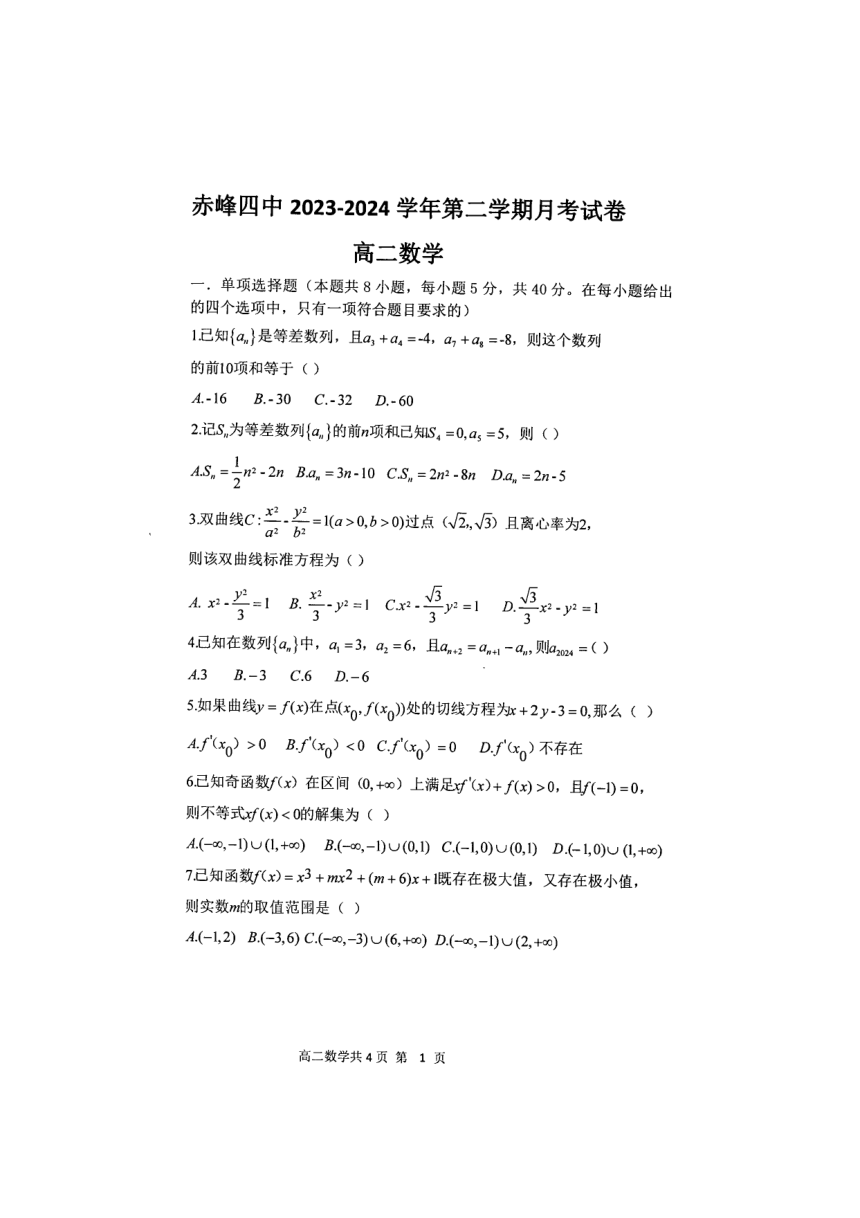 赤峰四中 2023-2024 学年第二学期月考试卷
高二数学
一．单项选择题（本题共 8 小题，每小题 5 分，共 40 分。在每小题给出
的四个选项中，只有一项符合题目要求的）
1.已知{aₙ}是等差数列，且a₃ + a₄ = -4，a₇ + a₈ = -8，则这个数列
的前10项和等于（ ）
A.- 16 B.- 30 C.- 32 D.- 60
2.记Sₙ为等差数列{aₙ}的前n项和已知S₄ = 0, a₅ = 5，则（ ）
A.Sₙ = 1/2 n² - 2n B.aₙ = 3n - 10 C.Sₙ = 2n² - 8n D.aₙ = 2n - 5
3.双曲线C : x²/a² - y²/b² = 1(a > 0, b > 0)过点（√2,,√3）且离心率为2，
则该双曲线标准方程为（ ）
A. x² - y²/3 = 1 B. x²/3 - y² = 1 C.x² - √3/3 y² = 1 D. √3/3 x² - y² = 1
4.已知在数列{aₙ}中，a₁ = 3，a₂ = 6，且aₙ₊₂ = aₙ₊₁ − aₙ, 则a₂₀₂₄ = ( )
A.3 B.−3 C.6 D.−6
5.如果曲线y = f(x)在点(x₀, f(x₀))处的切线方程为x + 2y - 3 = 0, 那么（ ）
A.f'(x₀) > 0 B.f'(x₀) < 0 C.f'(x₀) = 0 D.f'(x₀) 不存在
6.已知奇函数f(x) 在区间 (0, +∞) 上满足xf'(x) + f(x) > 0，且f(−1) = 0，
则不等式xf(x) < 0的解集为（ ）
A.(−∞, −1)∪(1, +∞) B.(−∞, −1)∪(0,1) C.(−1,0)∪(0,1) D.(−1,0)∪(1, +∞)
7.已知函数f(x) = x³ + mx² + (m + 6)x + 1既存在极大值，又存在极小值，
则实数m的取值范围是（ ）
A.(−1,2) B.(−3,6) C.(−∞, −3)∪(6, +∞) D.(−∞, −1)∪(2, +∞)
高二数学共 4 页 第 1 页